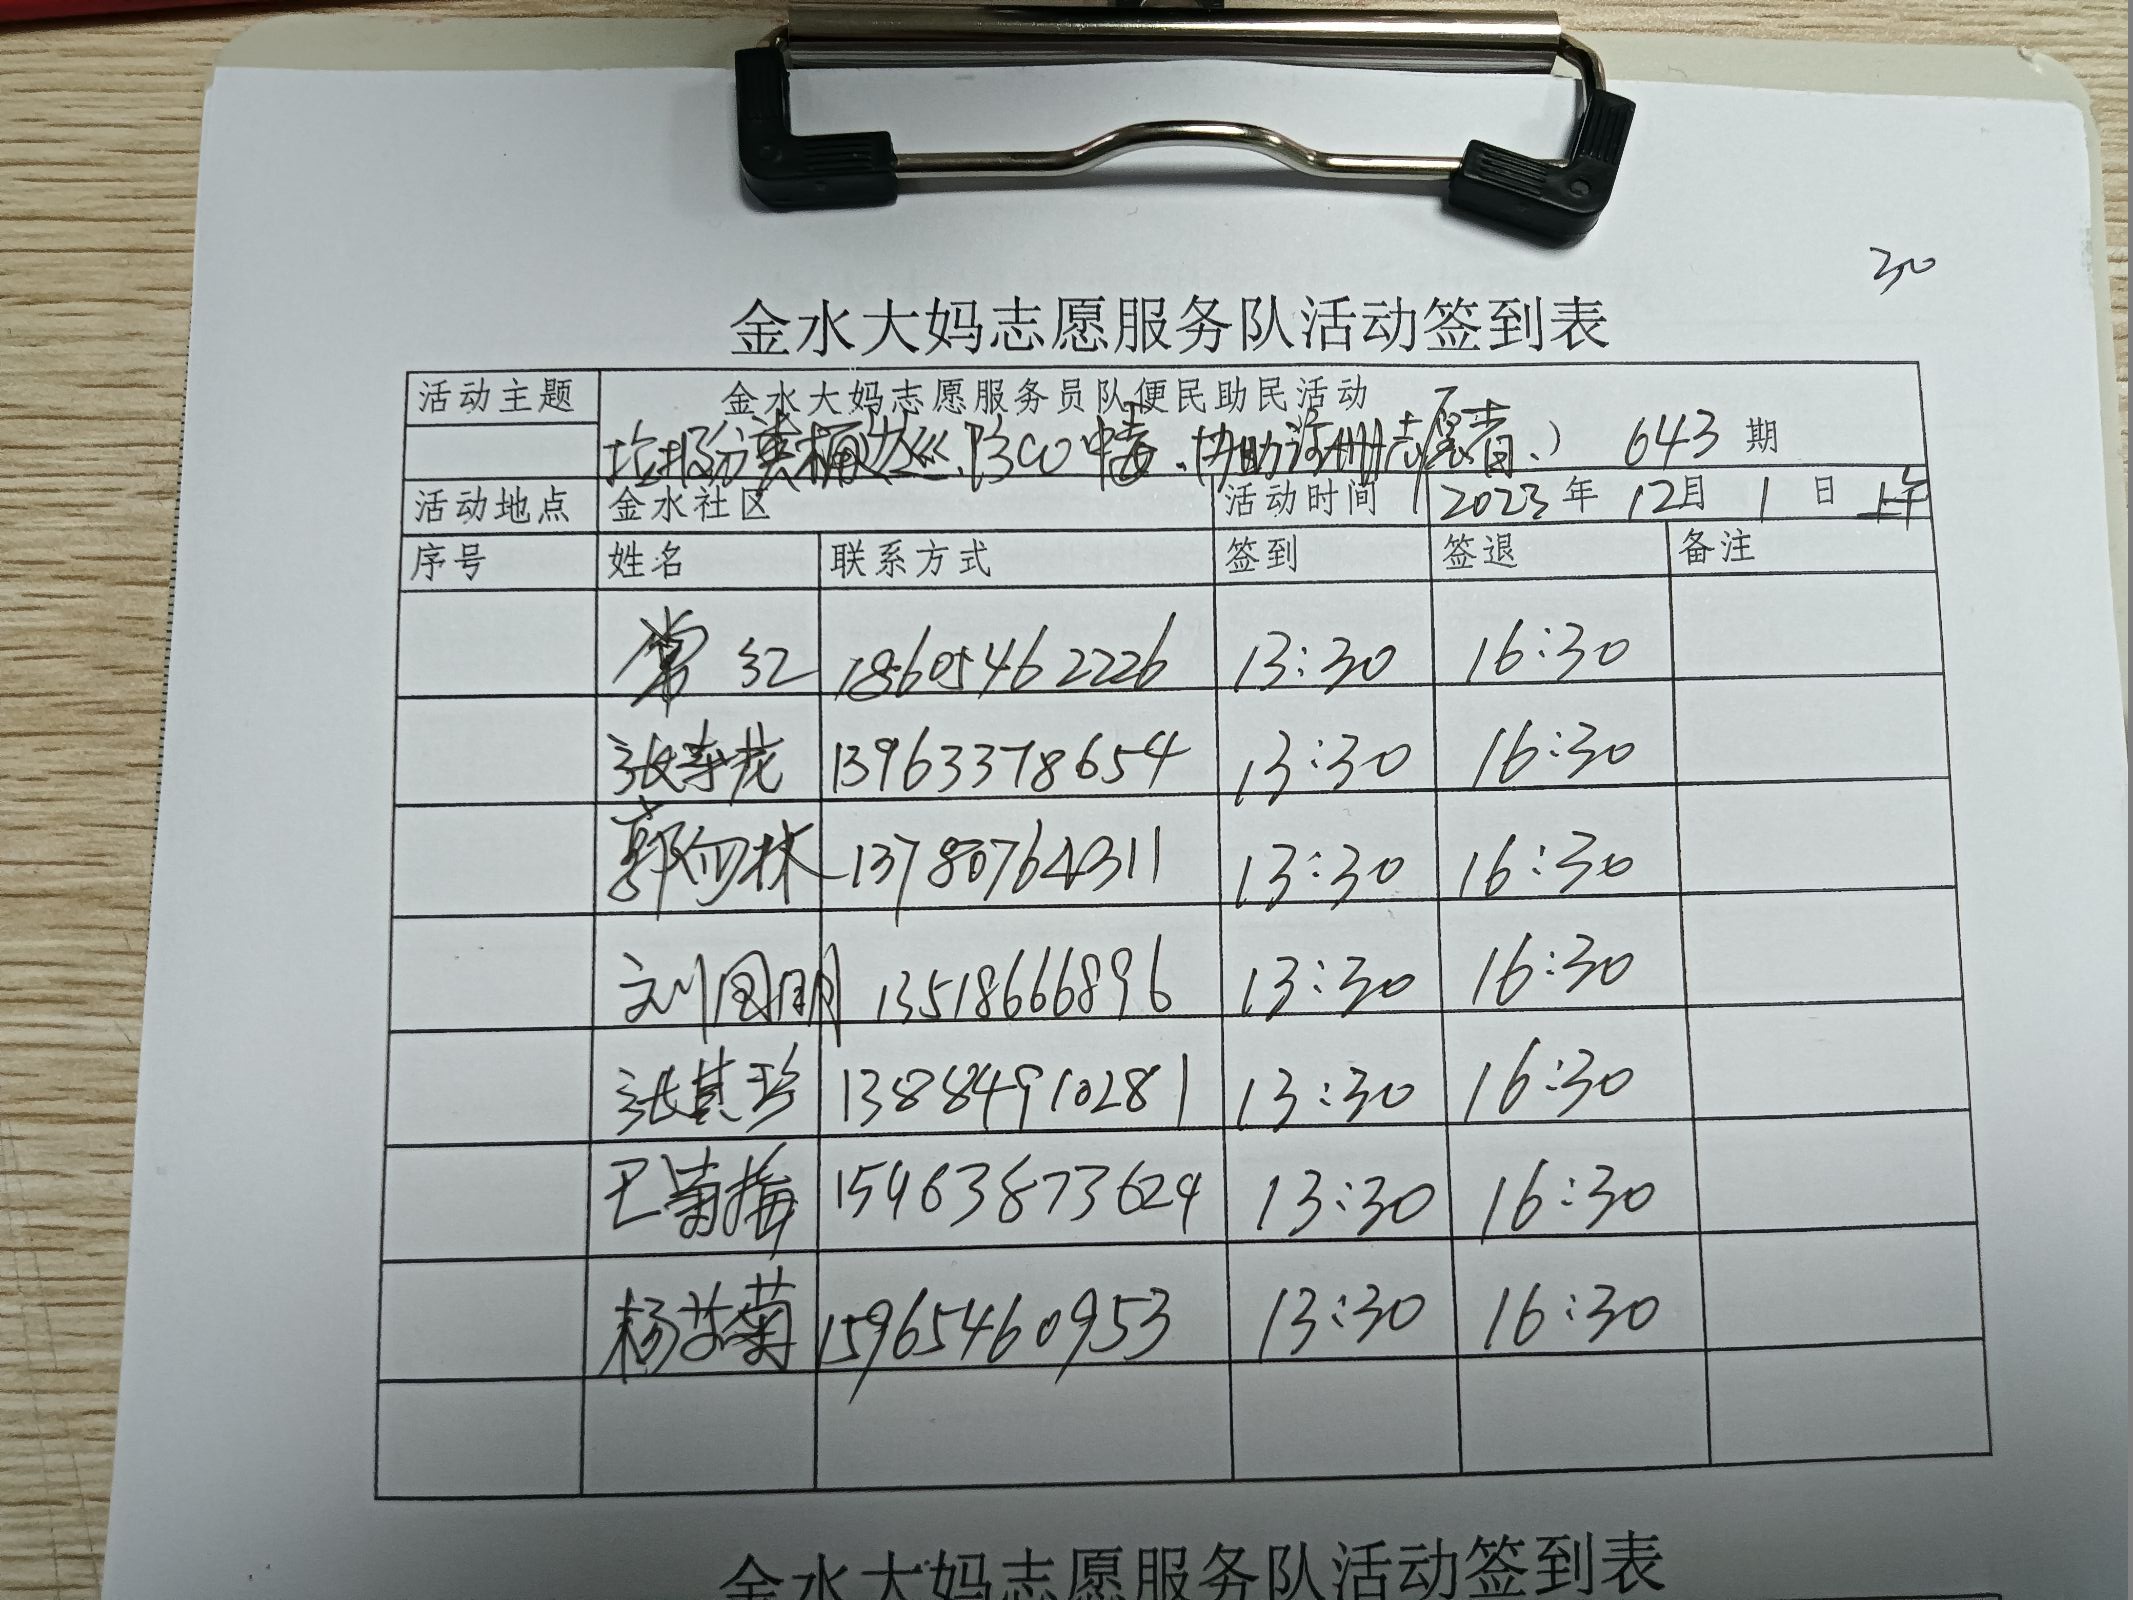 30
金水大妈志愿服务队活动签到表
活动主题 金水大妈志愿服务员队便民助民活动
垃圾分类桶边巡、防CO中毒、协助注册志愿者、) 643 期
活动地点 金水社区 活动时间 2023 年 12月 1 日 上午
序号 姓名 联系方式 签到 签退 备注
常红 18605462226 13:30 16:30
张 13963378654 13:30 16:30
郭 林 13780764311 13:30 16:30
刘国明 13518666896 13:30 16:30
张其珍 13884910281 13:30 16:30
王菊梅 15963873624 13:30 16:30
杨 菊 15965460953 13:30 16:30
金水大妈志愿服务队活动签到表